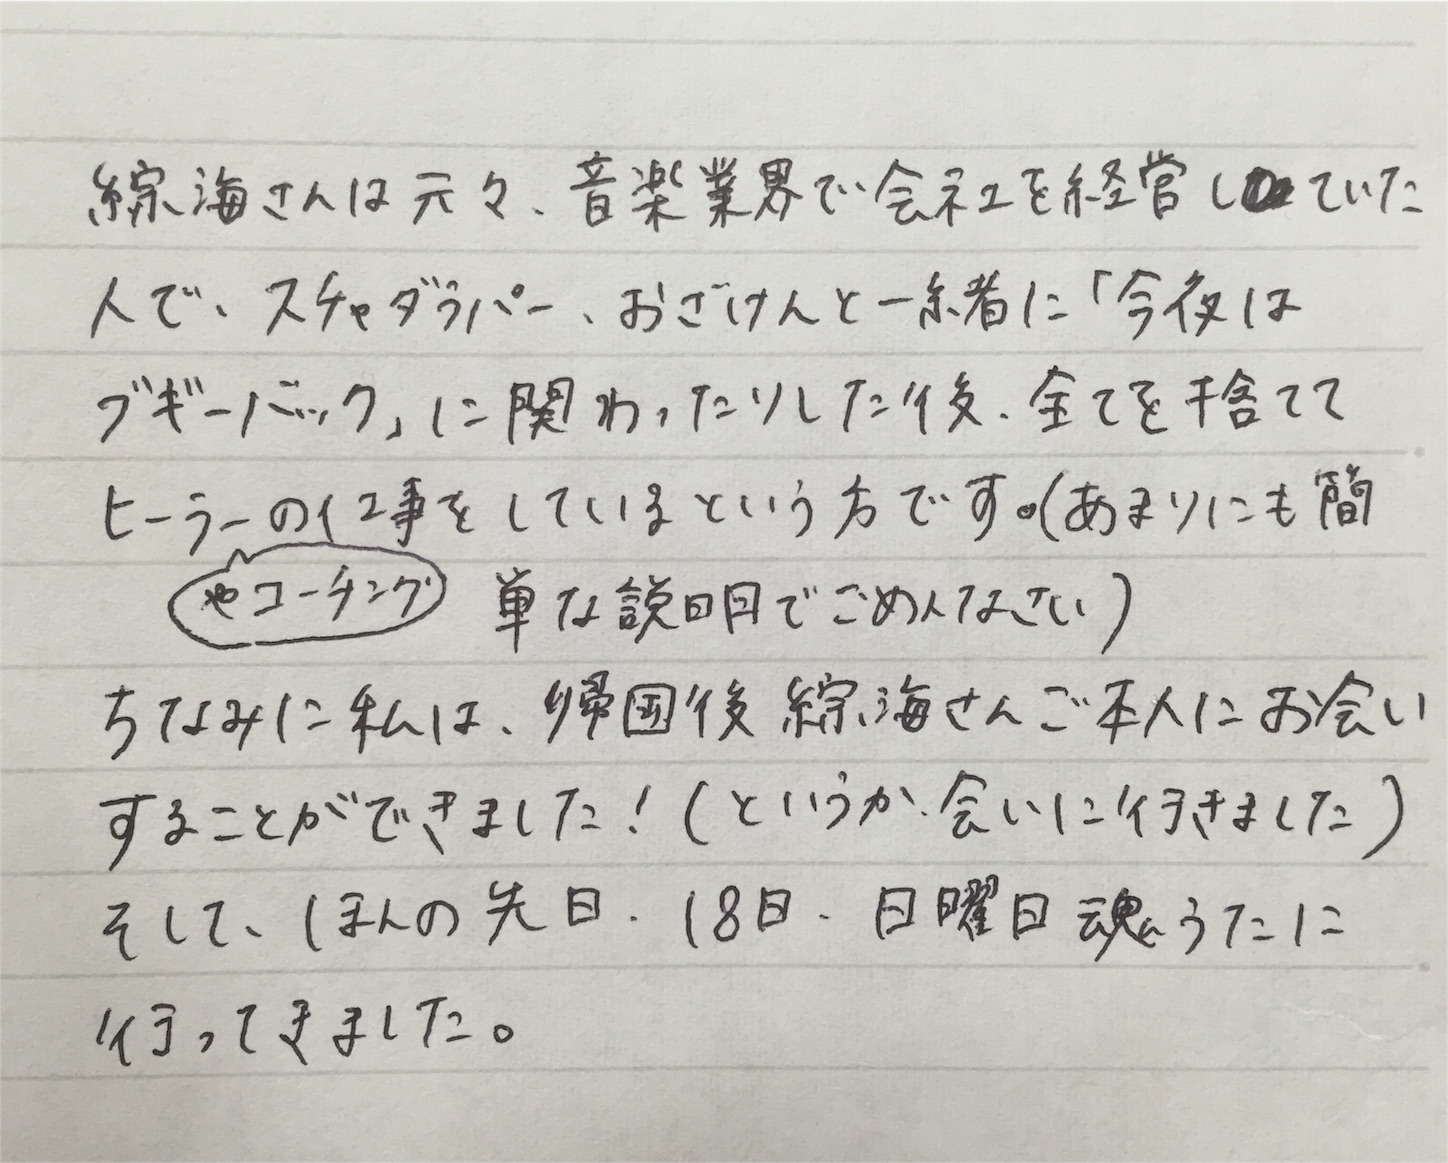 綜海さんは元々、音楽業界で会社を経営していた
人で、スチャダラパー、おざけんと一緒に「今夜は
ブギーバック」に関わったりした後、全てを捨てて
ヒーラーの仕事をしているという方です。(あまりにも簡
やコーチング
単な説明でごめんなさい)
ちなみに私は、帰国後綜海さんご本人にお会い
することができました!(というか、会いに行きました)
そして、ほんの先日、18日、日曜日魂うたに
行ってきました。